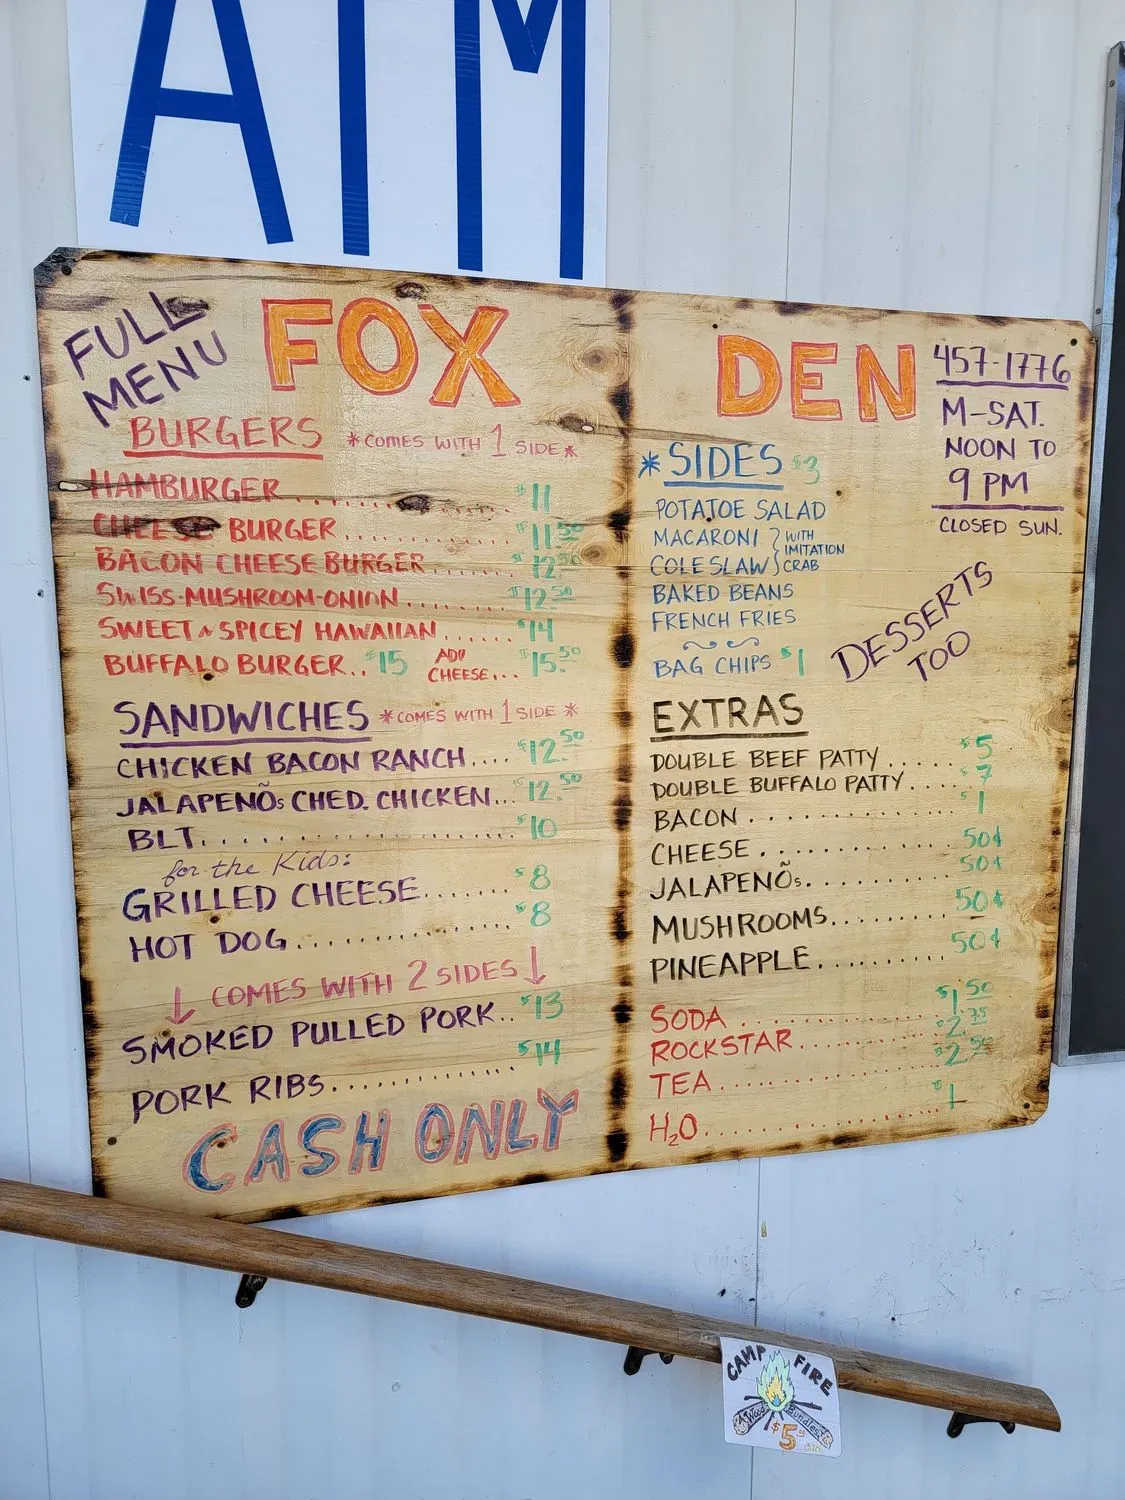 ATM
FULL
MENU
FOX DEN
457-1776
M-SAT.
NOON TO
9 PM
CLOSED SUN.
BURGERS *COMES WITH 1 SIDE*
HAMBURGER.......... $11
CHEESE BURGER............ $11.50
BACON CHEESE BURGER....... $12.50
SWISS-MUSHROOM-ONION........ $12.50
SWEET & SPICEY HAWAIIAN ...... $14
BUFFALO BURGER.. $15 ADD CHEESE... $15.50
SANDWICHES *COMES WITH 1 SIDE *
CHICKEN BACON RANCH.... $12.50
JALAPENÕs CHED. CHICKEN... $12.50
BLT................. $10
for the Kids:
GRILLED CHEESE....... $8
HOT DOG............... $8
COMES WITH 2 SIDES
SMOKED PULLED PORK.. $13
PORK RIBS............. $14
CASH ONLY
*SIDES $3
POTATOE SALAD
MACARONI } WITH
COLESLAW } IMITATION CRAB
BAKED BEANS
FRENCH FRIES
BAG CHIPS $1
DESSERTS
TOO
EXTRAS
DOUBLE BEEF PATTY ....... $5
DOUBLE BUFFALO PATTY..... $7
BACON ............. $1
CHEESE ............ 50¢
JALAPENÕs.......... 50¢
MUSHROOMS.......... 50¢
PINEAPPLE.......... 50¢
SODA .............. $1.50
ROCKSTAR........... $2.75
TEA................ $2.50
H2O................ $1
CAMP FIRE
Wood Bundles
$5.00